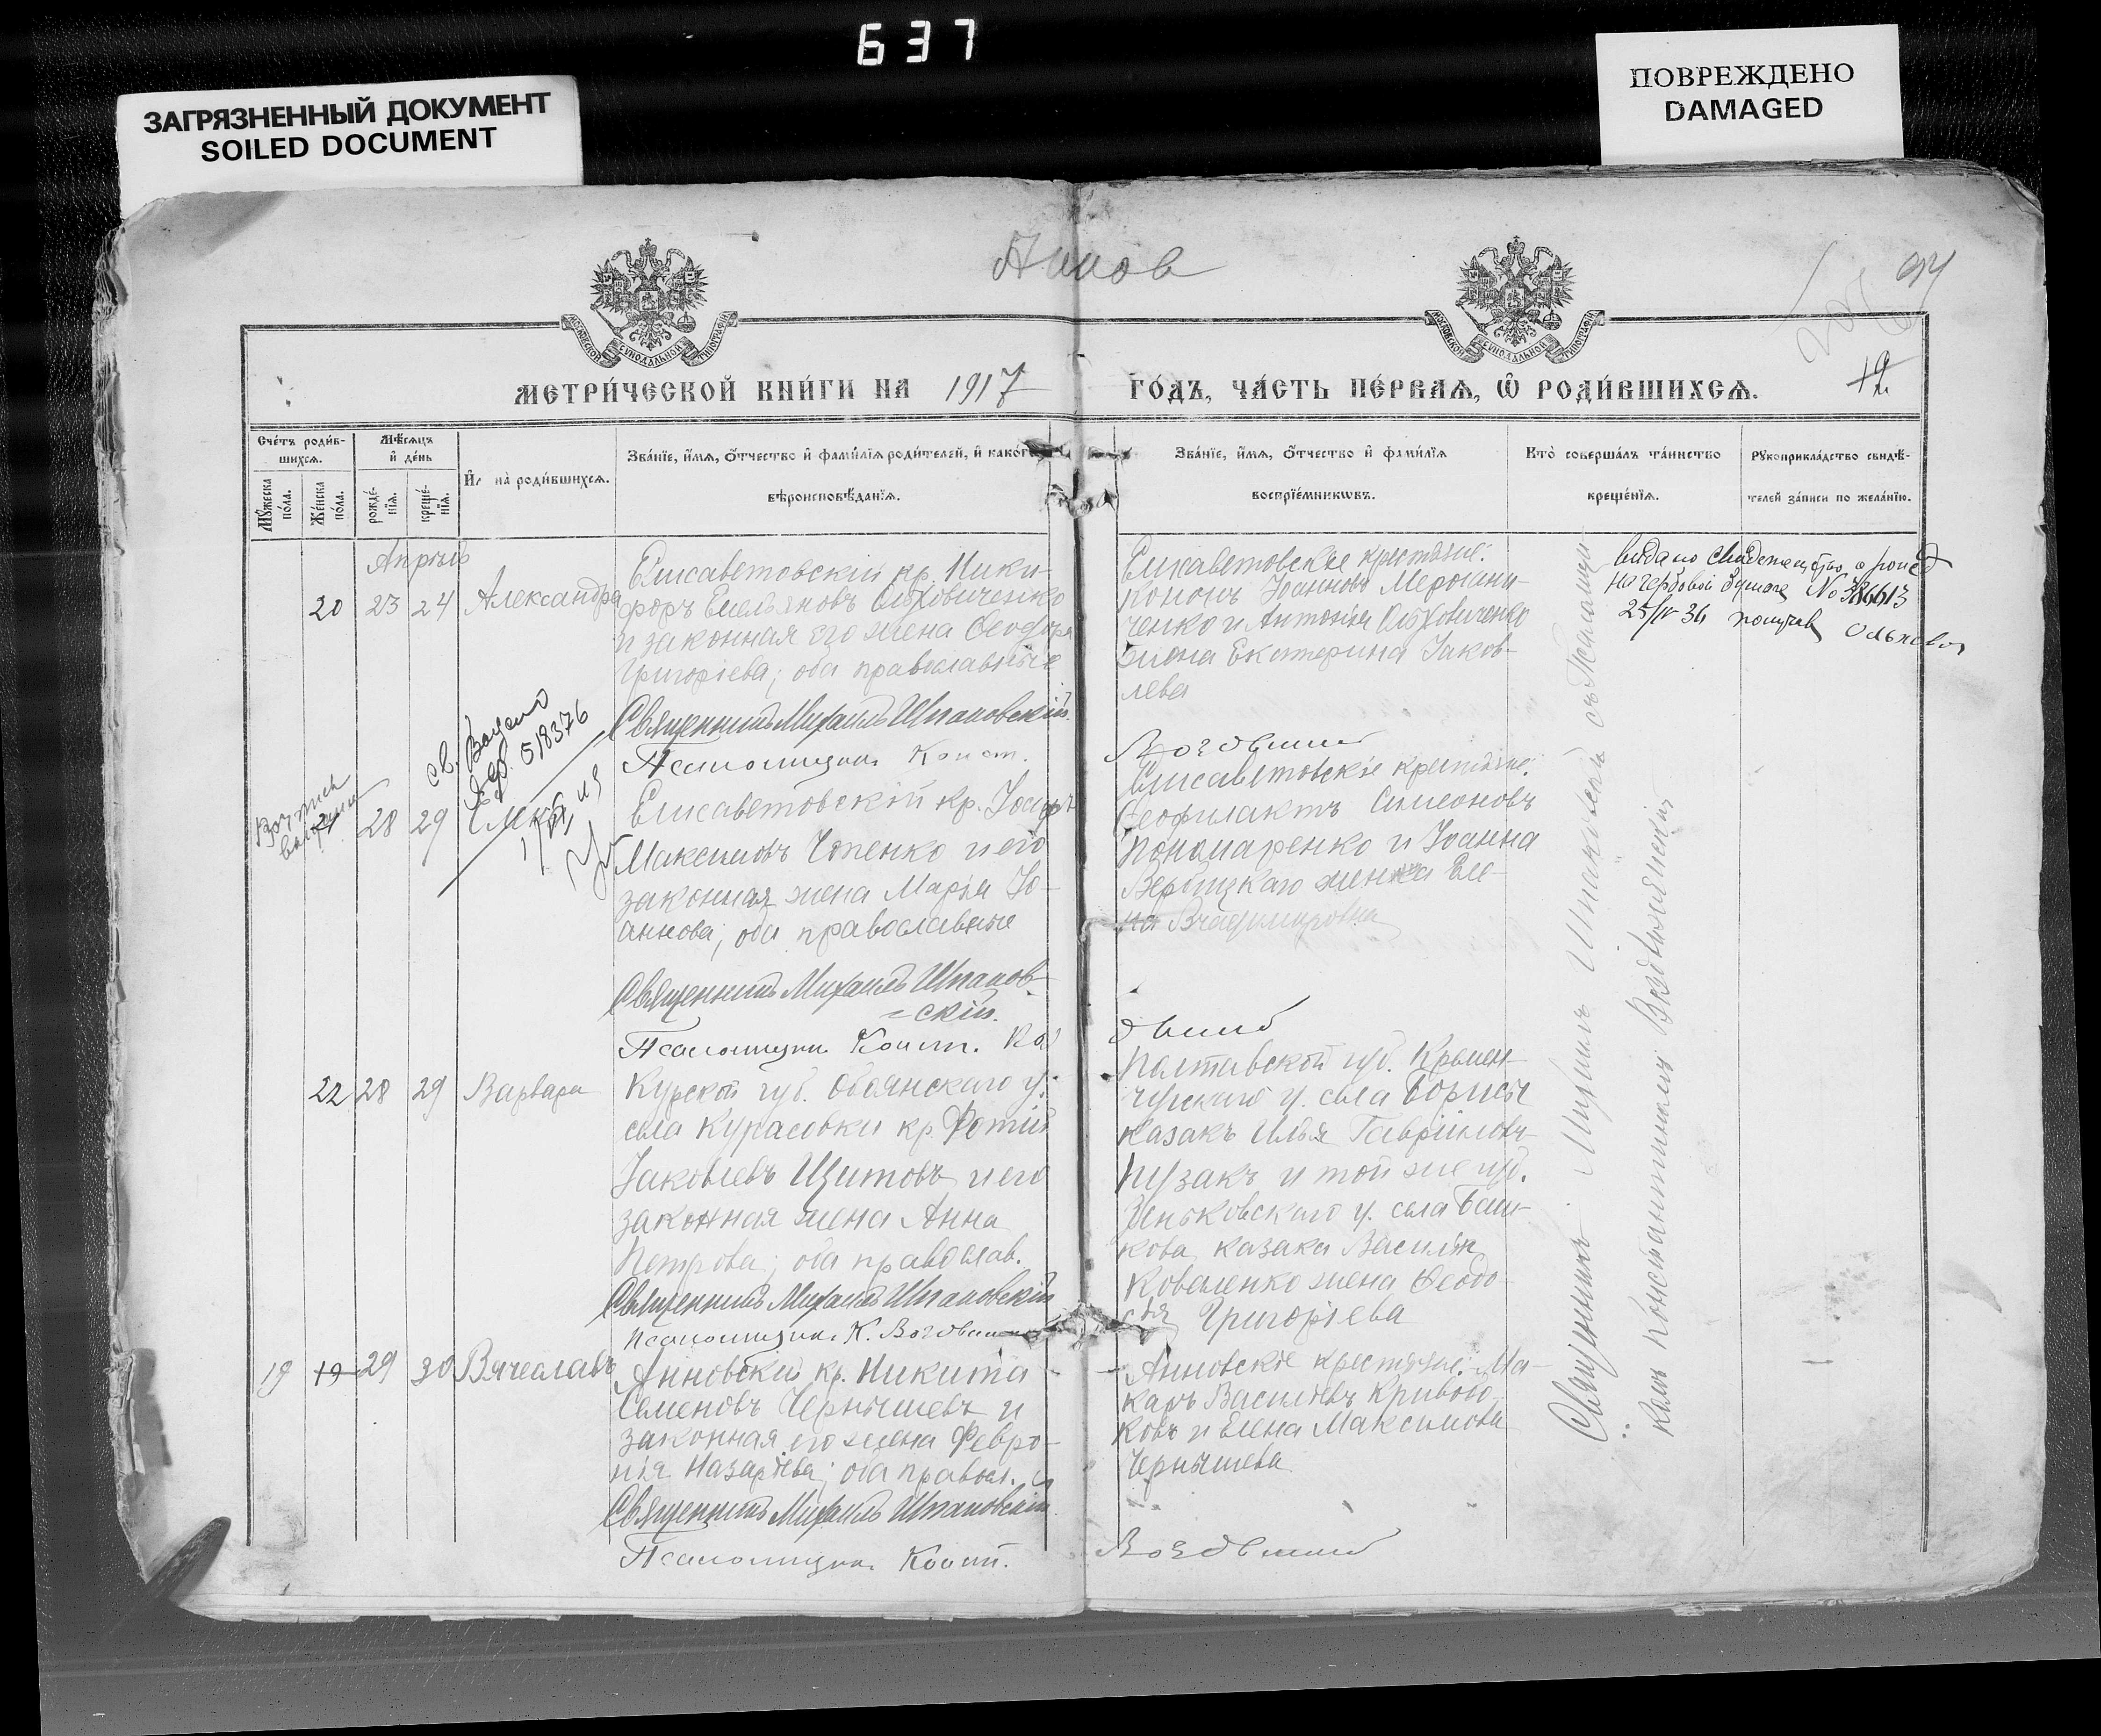 637
ЗАГРЯЗНЕННЫЙ ДОКУМЕНТ
SOILED DOCUMENT
ПОВРЕЖДЕНО
DAMAGED
МЕТРИ́ЧЕСКОЙ КНИ́ГИ НА 1917
ГО́ДЪ, ЧА́СТЬ ПЕ́РВАѦ, Ѽ РОДИ́ВШИХСѦ.
Сче́тъ роди́в-
шихсѧ.
Мꙋ́жеска по́ла.
Же́нска по́ла.
Мѣ́сѧцъ
и҆ де́нь
рожде́-
нїѧ.
креще́-
нїѧ.
на̀ роди́вшихсѧ.
Зва́нїе, и҆́мѧ, ѻ҆́тчество и҆ фамѵ́лїѧ роди́телей, и҆ како́г
вѣроисповѣ́данїѧ.
Зва́нїе, и҆́мѧ, ѻ҆́тчество и҆ фамѵ́лїѧ
воспрїе́мникѡвъ.
Кто̀ соверша́лъ та́инство
креще́нїѧ.
Рꙋкоприкла́дство свидѣ́-
телей за́писи по жела́нїю.
Апрѣль
20 23 24 Александра
Елисаветовскій кр. Ники-
форъ Емельяновъ Ольховиченко
и законная его жена Ѳеодора
Григорiева; оба православные
Священникъ Михаилъ Шпаковскій.
Псаломщикъ Конст.
Елисаветовскіе крестьяне:
Кононъ Іоанновъ
ченко и Антонія Ольховиченко
жена Екатерина Іаков-
лева
Воздвиж
выдано свидетельство о рожд
на гербовой бумаге № 386613
25/IV 36 получев
св. выдано
518376
28 29
Елисаветовскій кр. Іосифъ
Максимовъ Чопенко и его
законная жена Марія Іо-
аннова; оба православные
Священникъ Михаилъ Шпаков-
=скій.
Псаломщикъ Конст. Воз
Елисаветовскіе крестьяне:
Ѳеофилактъ Симеоновъ
Пономаренко и Іоанна
Вербицкаго женка Еле-
на Владимировна
движ
22 28 29 Варвара
Курской губ. Обоянскаго у.
села Курасовки кр. Фотій
Іаковлевъ Щитовъ и его
законная жена Анна
Петрова; оба православ.
Священникъ Михаилъ Шпаковскій
Псаломщикъ К. Воздвиж
Полтавской губ. Кремен-
чугскаго у. села Борисы
казакъ Илья Гавріиловъ
Пузакъ и той же губ.
Зеньковскаго у. села Баш-
кова казака Василія
Коваленко жена Ѳеодо-
сія Григоріева
19 19 29 30 Вячеславъ
Анновскій кр. Никита
Семеновъ Чернышевъ и
законная его жена Февро-
нія Назаріева; оба правосл.
Священникъ Михаилъ Шпаковскій
Псаломщикъ Конст.
Анновскіе крестьяне: Ма-
каръ Васильевъ Кривобо-
ковъ и Елена Максимова
Чернышева
Воздвиж
Священникъ Михаилъ Шпаковскій съ Псаломщи-
комъ Константиномъ Воздвиженскимъ